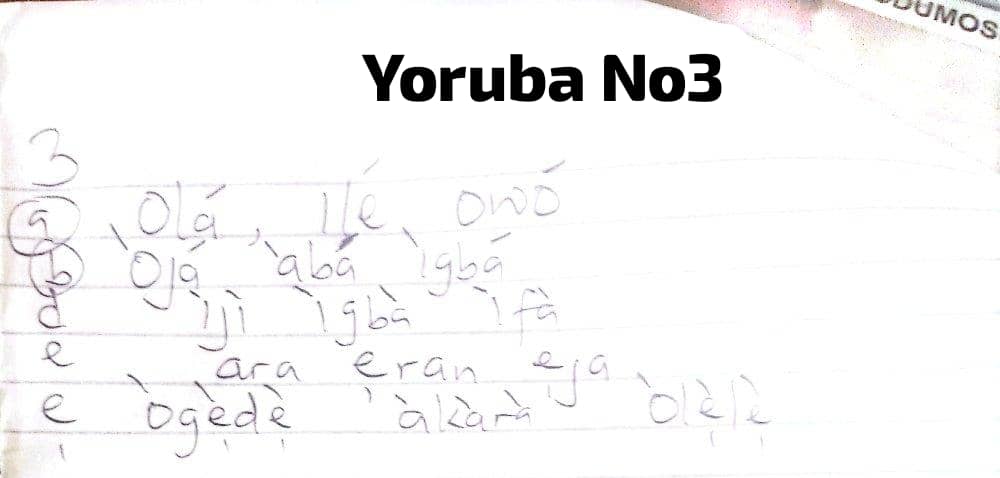 DUMOS
Yoruba No3
3
a Olá, Ilé, owó
b Òjá àbá ìgbá
d Ìjì Ìgbà Ìfà
e ara eran eja
ẹ ògẹ̀dẹ̀ àkàrà Òlẹ̀lẹ̀